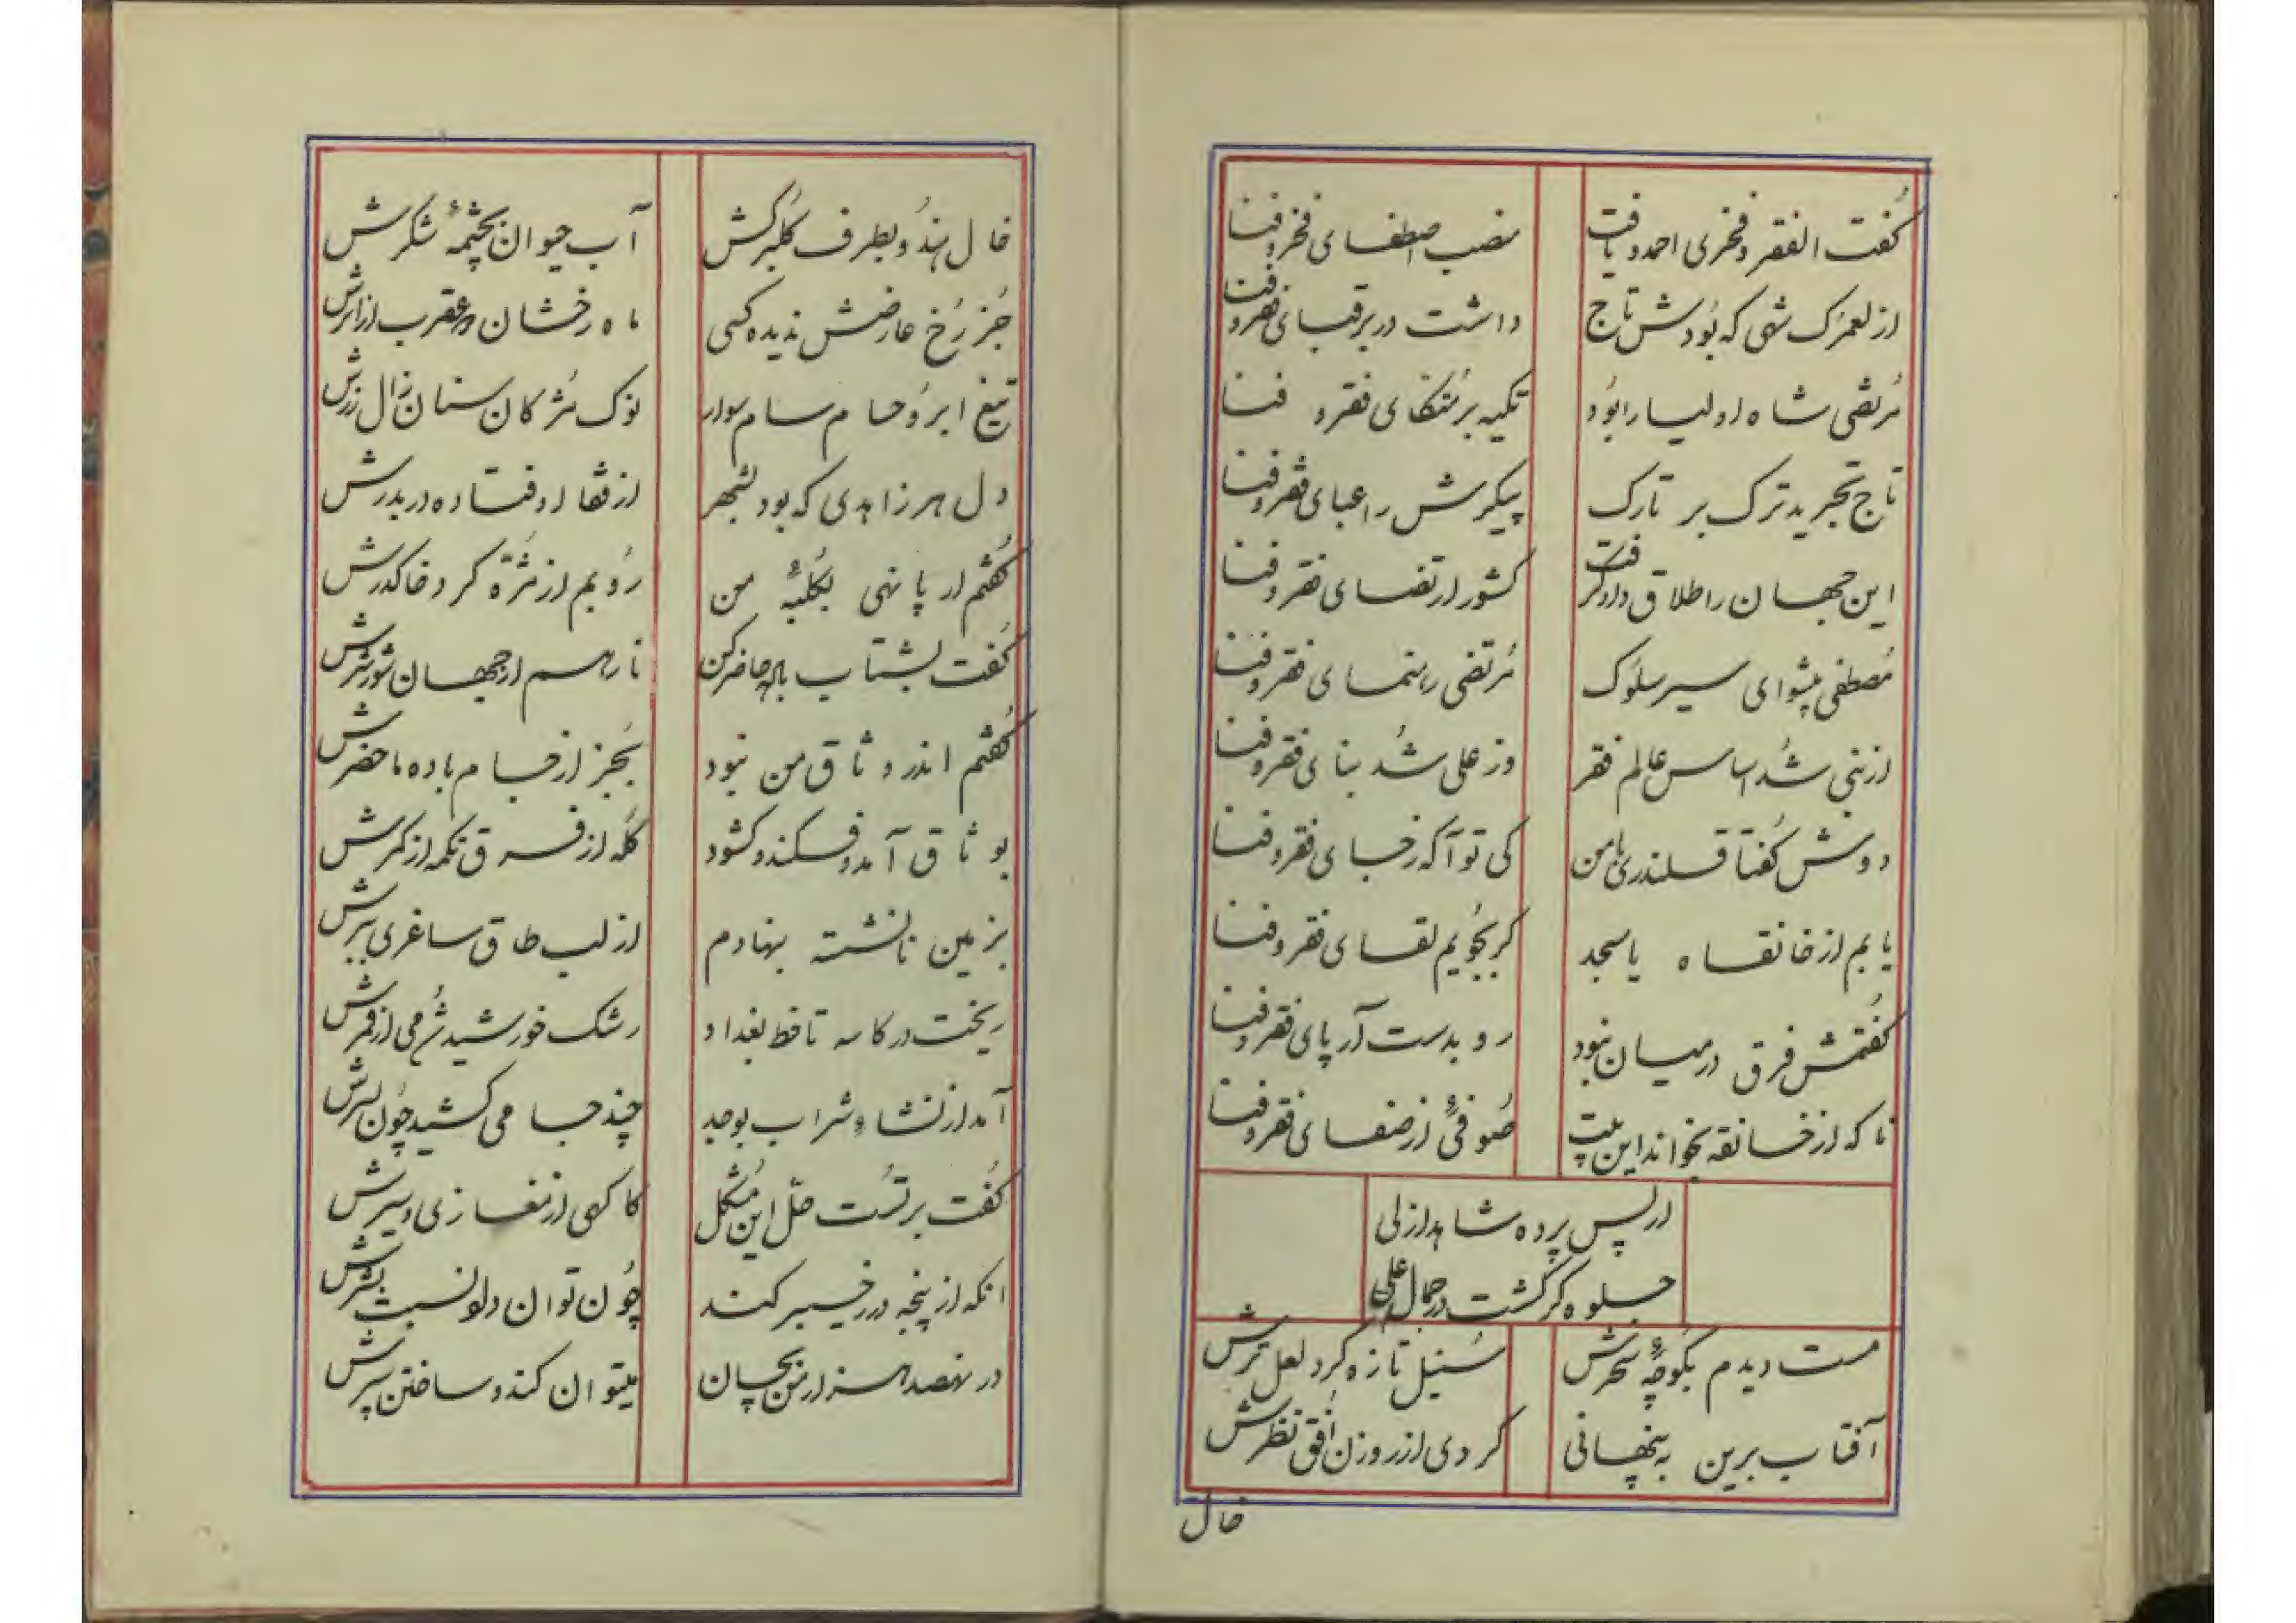 گفت الفقر و فخری احمد و یافت
منصب اصطفای فقر و فنا
از لعمرک شهی که بودش تاج
داشت در بر قبای فقر و فنا
مرتضی شاه اولیا را بود
تکیه بر متکای فقر و فنا
تاج تجرید ترک بر تارک
پیکرش را عبای فقر و فنا
این جهان را طلاق داد و گرفت
کشور ارتضای فقر و فنا
مصطفی پیشوای سیر سلوک
مرتضی رهنمای فقر و فنا
از نبی شد اساس عالم فقر
وز علی شد بنای فقر و فنا
دوش گفتا قلندری با من
کی تو آگه ز جای فقر و فنا
یابم از خانقاه یا مسجد
گر بجویم لقای فقر و فنا
گفتمش فرق در میان نبود
رو بدست آر پای فقر و فنا
تا که از خانقه بخواند این بیت
صوفئی از صفای فقر و فنا
از پس پرده شاهد ازلی
جلوه گر گشت در جمال علی
مست دیدم بکوچهٔ سحرش
سنبل تازه کرد لعل ترش
آفتاب برین به پنهانی
کردی از روزن افق نظرش
خال
خال هندو بطرف گلبرگش
آب حیوان بچشمهٔ شکرش
جز رخ عارضش ندیده کسی
ماه رخشان و عقرب از اثرش
تیغ ابرو حسام سام سوار
نوک مژکان سنان زال زرش
دل هر زاهدی که بود بشهر
از قفا اوفتاده در بدرش
گفتم ار پا نهی بکلبهٔ من
رویم از مژه گرد خاک درش
گفت بشتاب باله حاضر کن
تا رهم از جهان شور شرش
گفتم اندر وثاق من نبود
بجز از جام باده ما حضرش
بوثاق آمد و فکند و گشود
کله از فرق تکمه از کمرش
بزمین نانشسته بنهادم
از لب طاق ساغری ببرش
ریخت در کاسه تا خط بغداد
رشک خورشید شرمی از قمرش
آمد از نشاء شراب بوجد
چند جامی کشید چون بسرش
گفت بر تست حل این مشکل
کاگهی از مغازی و سیرش
آنکه از پنجه در ز خیبر کند
چون توان داد نسبت بشرش
در نهصد هزار من بچسان
میتوان کند و ساختن سپرش